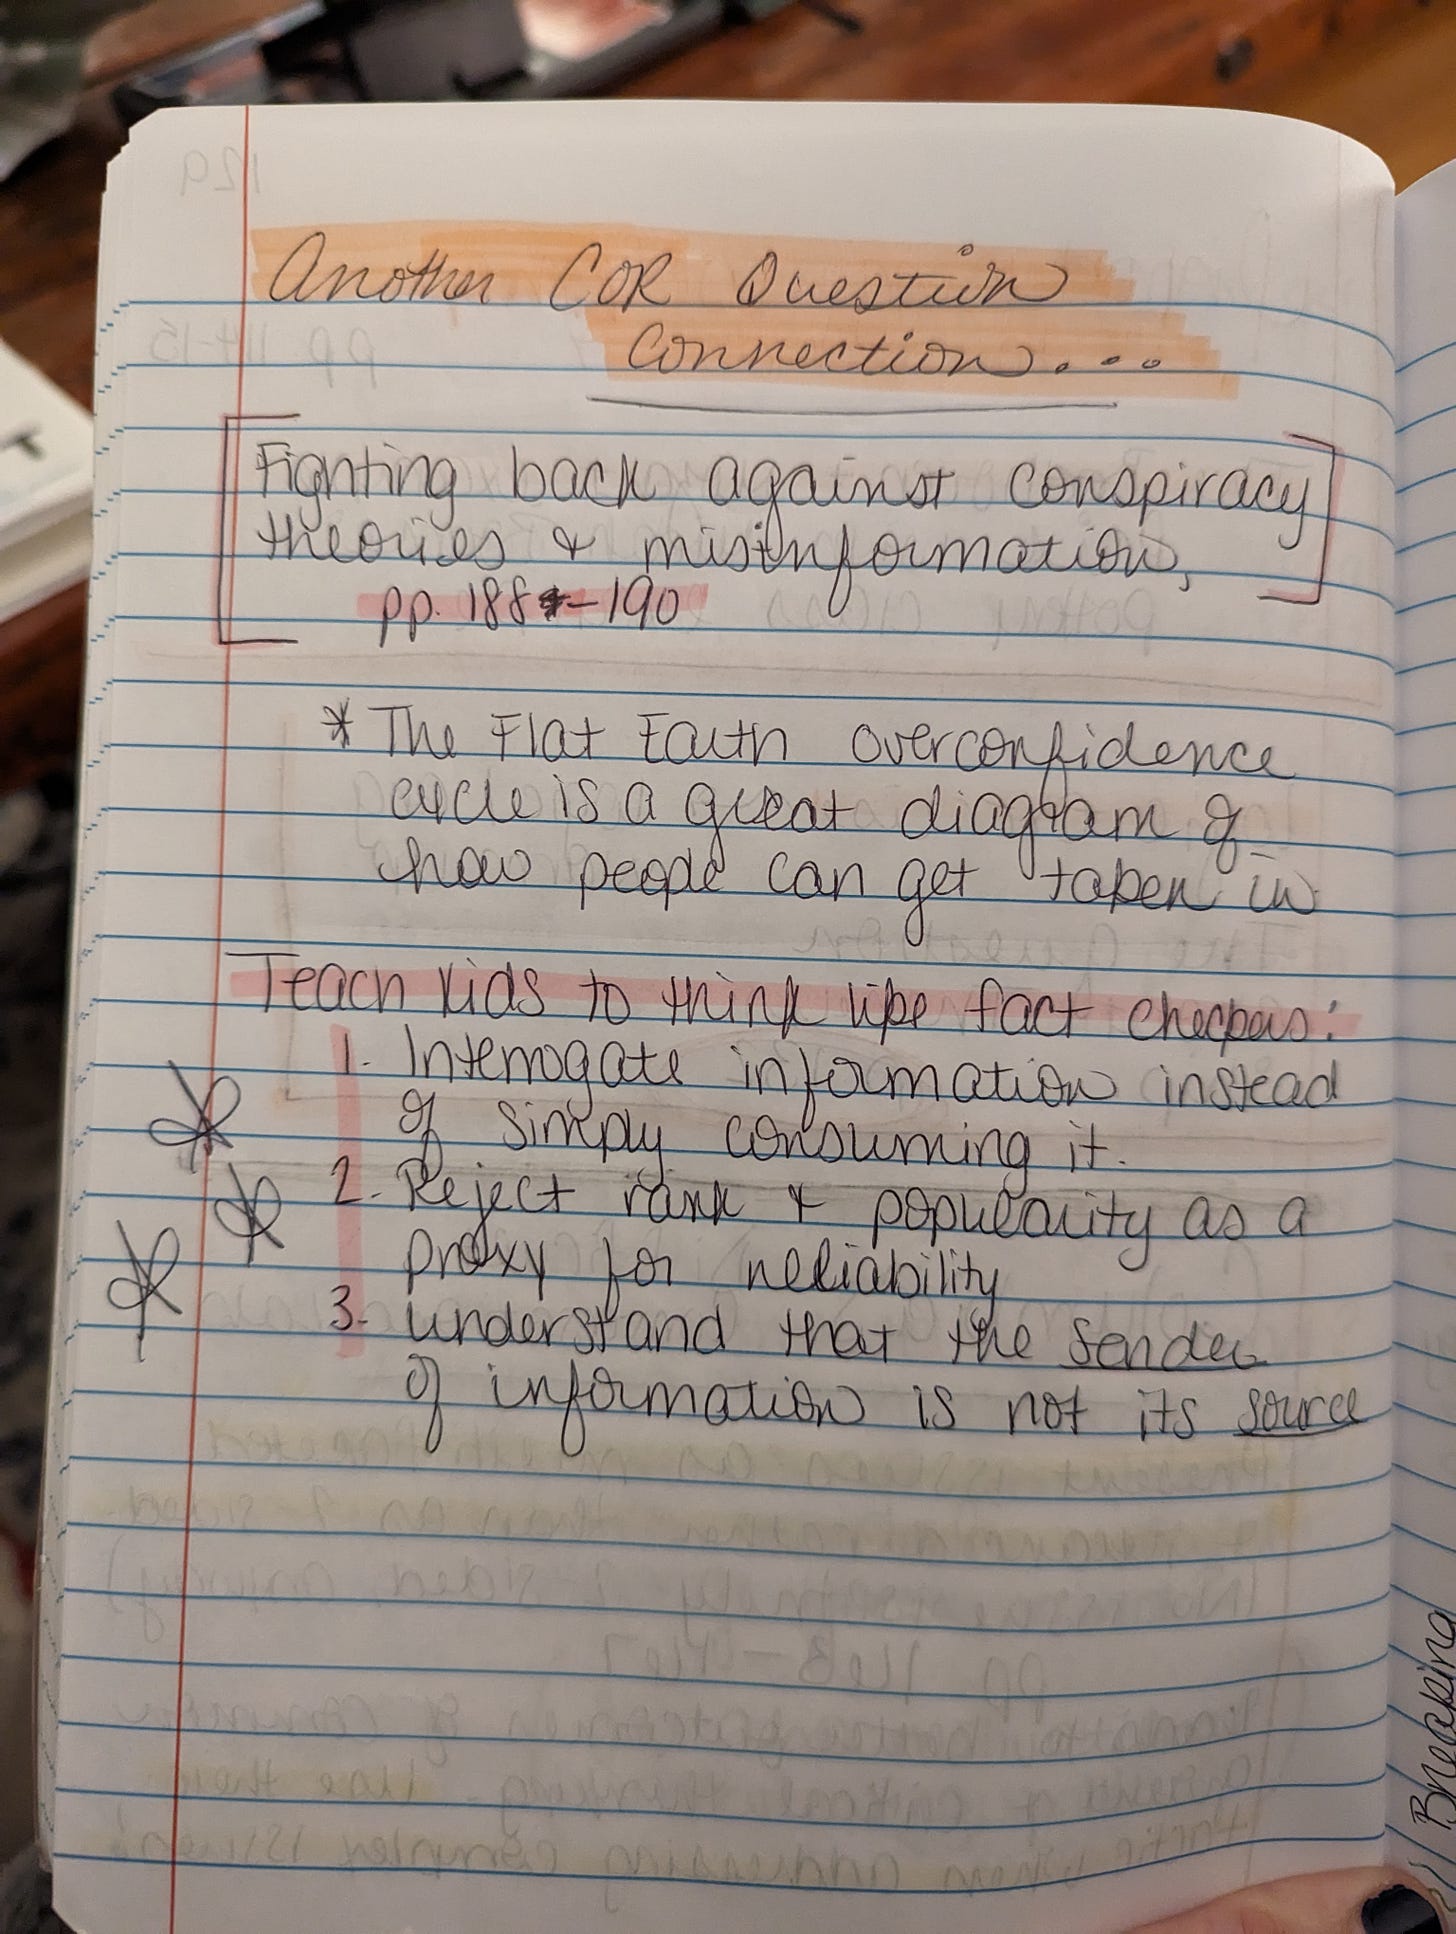 Another COR Question
Connection...
Fighting back against conspiracy
theories & misinformation,
pp. 188-190
* The Flat Earth overconfidence
cycle is a great diagram of
how people can get taken in
Teach kids to think like fact checkers:
1. Interrogate information instead
of simply consuming it.
2. Reject rank & popularity as a
proxy for reliability
3. understand that the sender
of information is not its source
Breaking